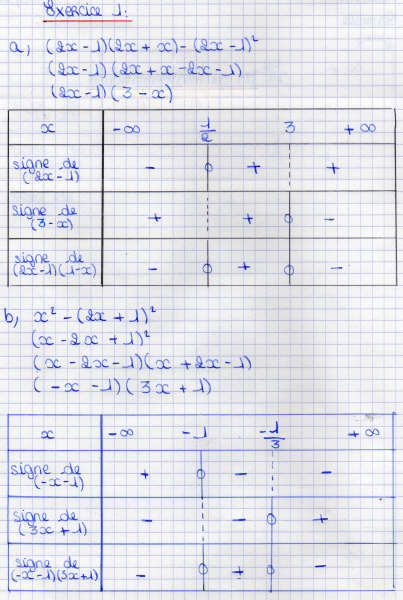 Exercice 1:
a, (2x-1)(2x+x)-(2x-1)²
(2x-1)(2x+x-2x-1)
(2x-1)(3-x)
x -∞ 1/2 3 +∞
signe de (2x-1) - 0 + +
signe de (3-x) + + 0 -
signe de (2x-1)(1-x) - 0 + 0 -
b, x²-(2x+1)²
(x-2x+1)²
(x-2x-1)(x+2x-1)
(-x-1)(3x+1)
x -∞ -1 -1/3 +∞
signe de (-x-1) + 0 - -
signe de (3x+1) - - 0 +
signe de (-x-1)(3x+1) - 0 + 0 -